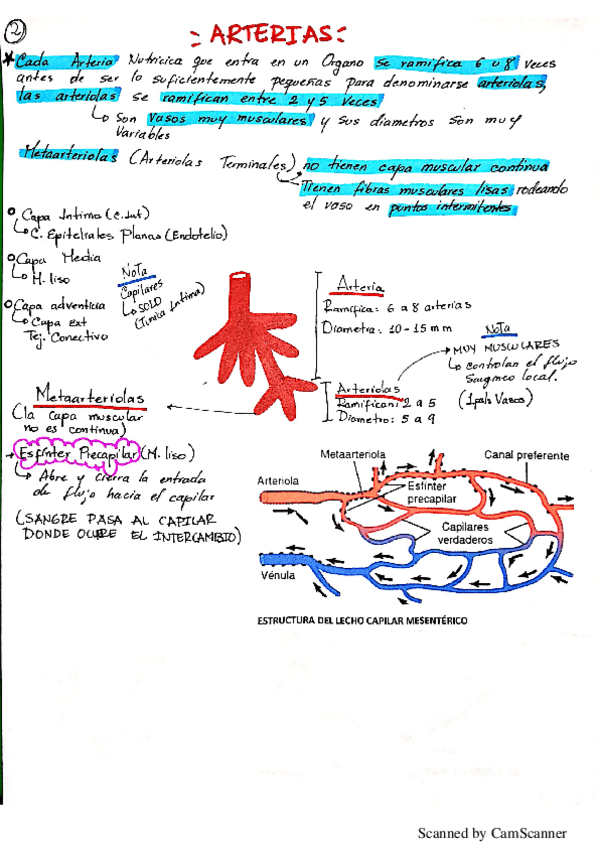 2
= ARTERIAS:
* Cada Arteria Nutricica que entra en un Organo se ramifica 6 u 8 veces
antes de ser lo suficientemente pequeñas para denominarse arteriolas,
las arteriolas se ramifican entre 2 y 5 veces
↳ Son vasos muy musculares y sus diametros son muy
variables
Metaarteriolas (Arteriolas Terminales) no tienen capa muscular continua
Tienen fibras musculares lisas rodeando
el vaso en puntos intermitentes
Capa Intima (C. Int)
↳ C. Epiteliales Planas (Endotelio)
Capa Media
↳ M. liso
Capa adventicia
↳ Capa ext
Tej. Conectivo
Nota
Capilares
↳ SOLO
(Tunica Intima)
Arteria
Ramifica: 6 a 8 arterias
Diametro: 10-15 mm
Nota
→ MUY MUSCULARES
↳ controlan el flujo
sangineo local.
Arteriolas
Ramifican: 2 a 5
Diametro: 5 a 9
Metaarteriolas
(la capa muscular
no es continua)
→ Esfinter Precapilar (M. liso)
↳ Abre y cierra la entrada
de flujo hacia el capilar
(SANGRE PASA AL CAPILAR
DONDE OCURRE EL INTERCAMBIO)
Metaarteriola
Canal preferente
Arteriola
Esfínter
precapilar
Capilares
verdaderos
Vénula
ESTRUCTURA DEL LECHO CAPILAR MESENTÉRICO
Scanned by CamScanner